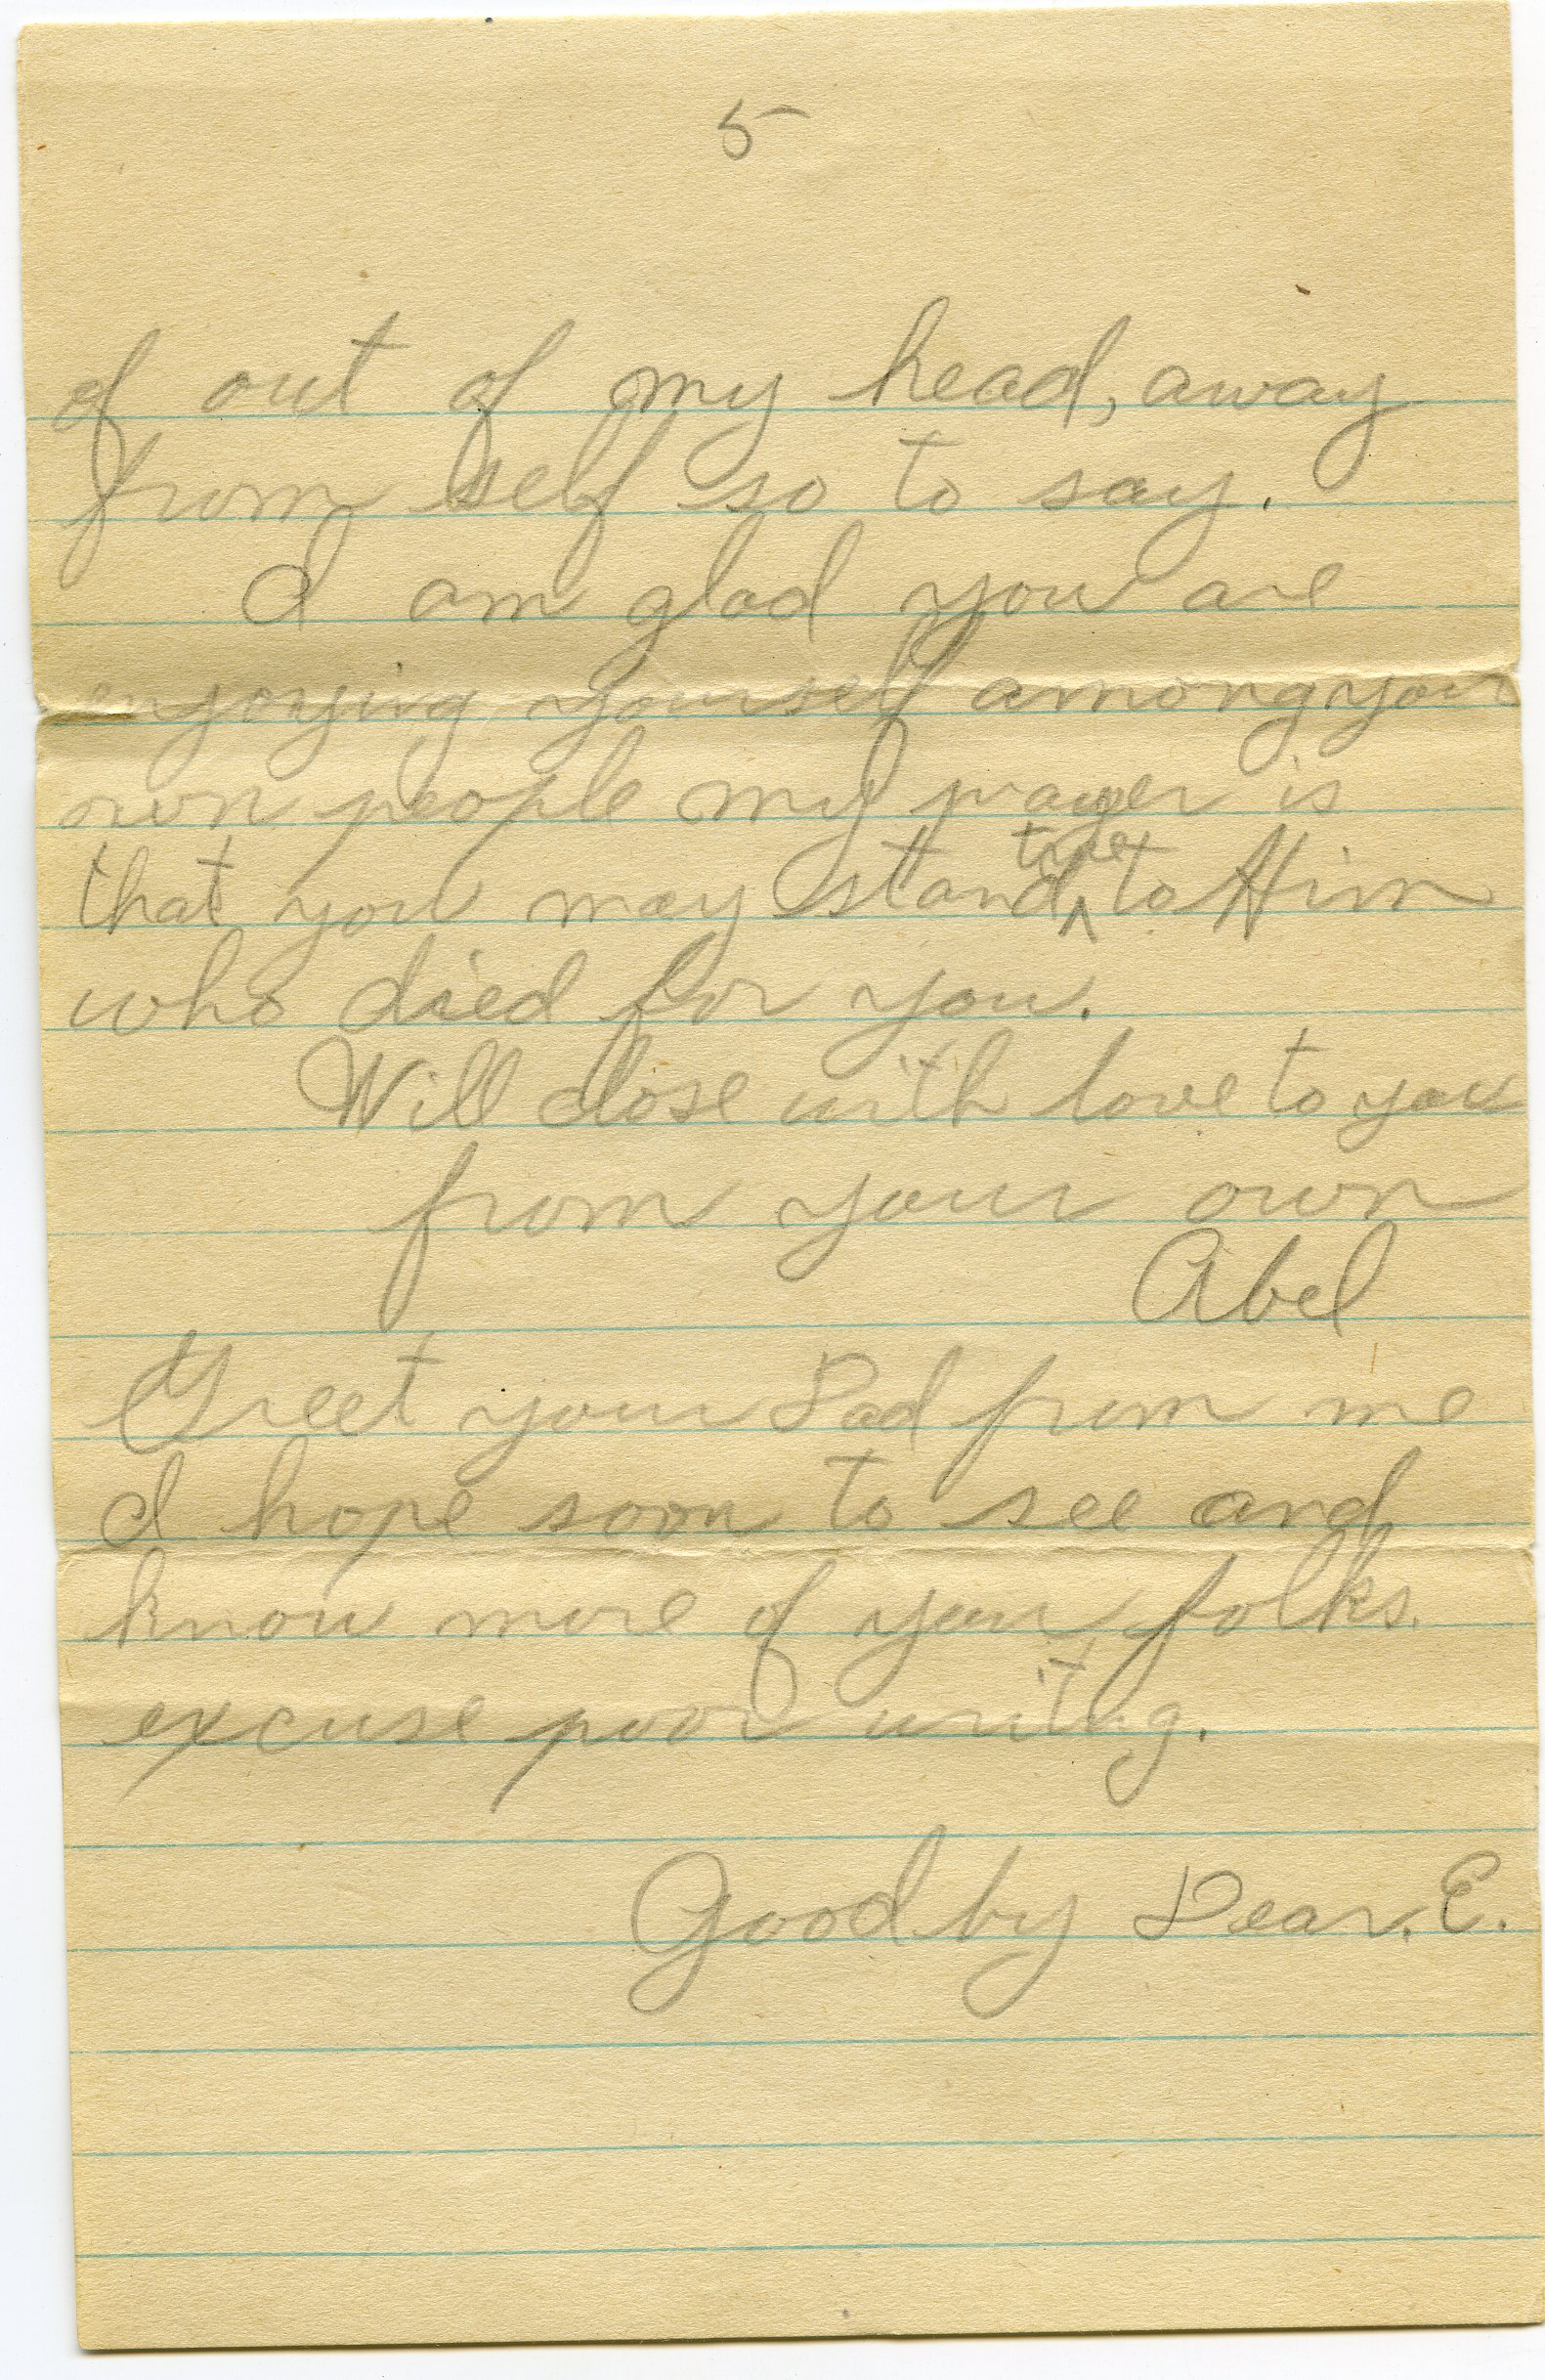 5
of out of my head, away
from self so to say.
I am glad you are
enjoying yourself among your
own people my prayer is
that you may stand true to Him
who died for you.
Will close with love to you
from your own
Abel
Greet your Dad from me
I hope soon to see and
know more of your folks.
excuse poor writing.
Good by Dear. E.